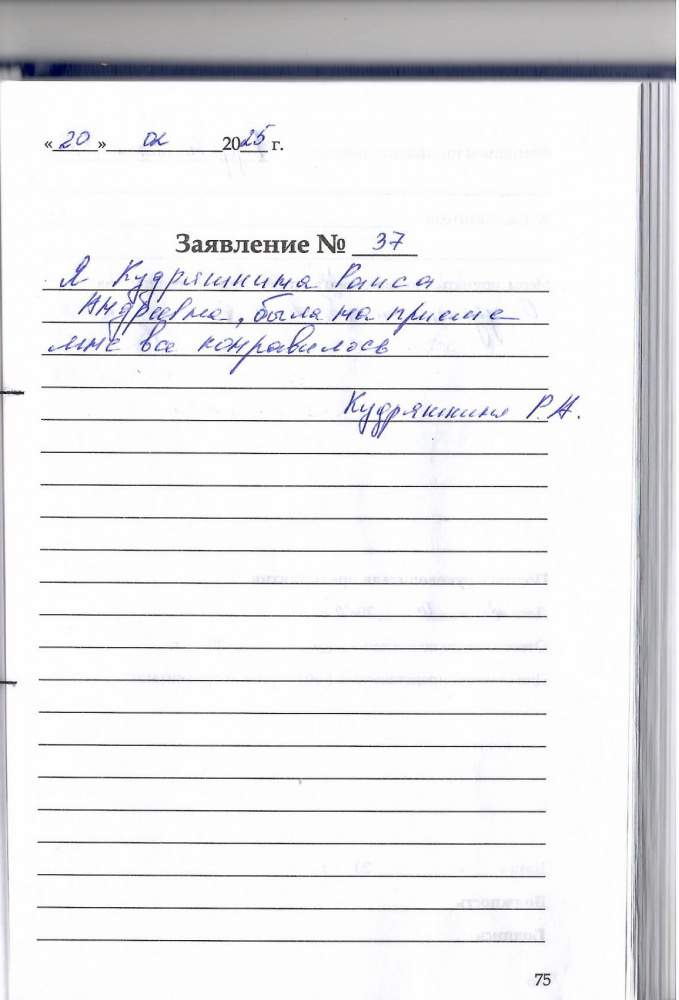 «20» 02 2025 г.
Заявление № 37
Я Кудряшкина Раиса
Андреевна, была на приеме
мне все понравилось
Кудряшкина Р.А.
75